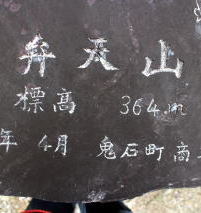 弁天山
標高 364m
年 4月 鬼石町商